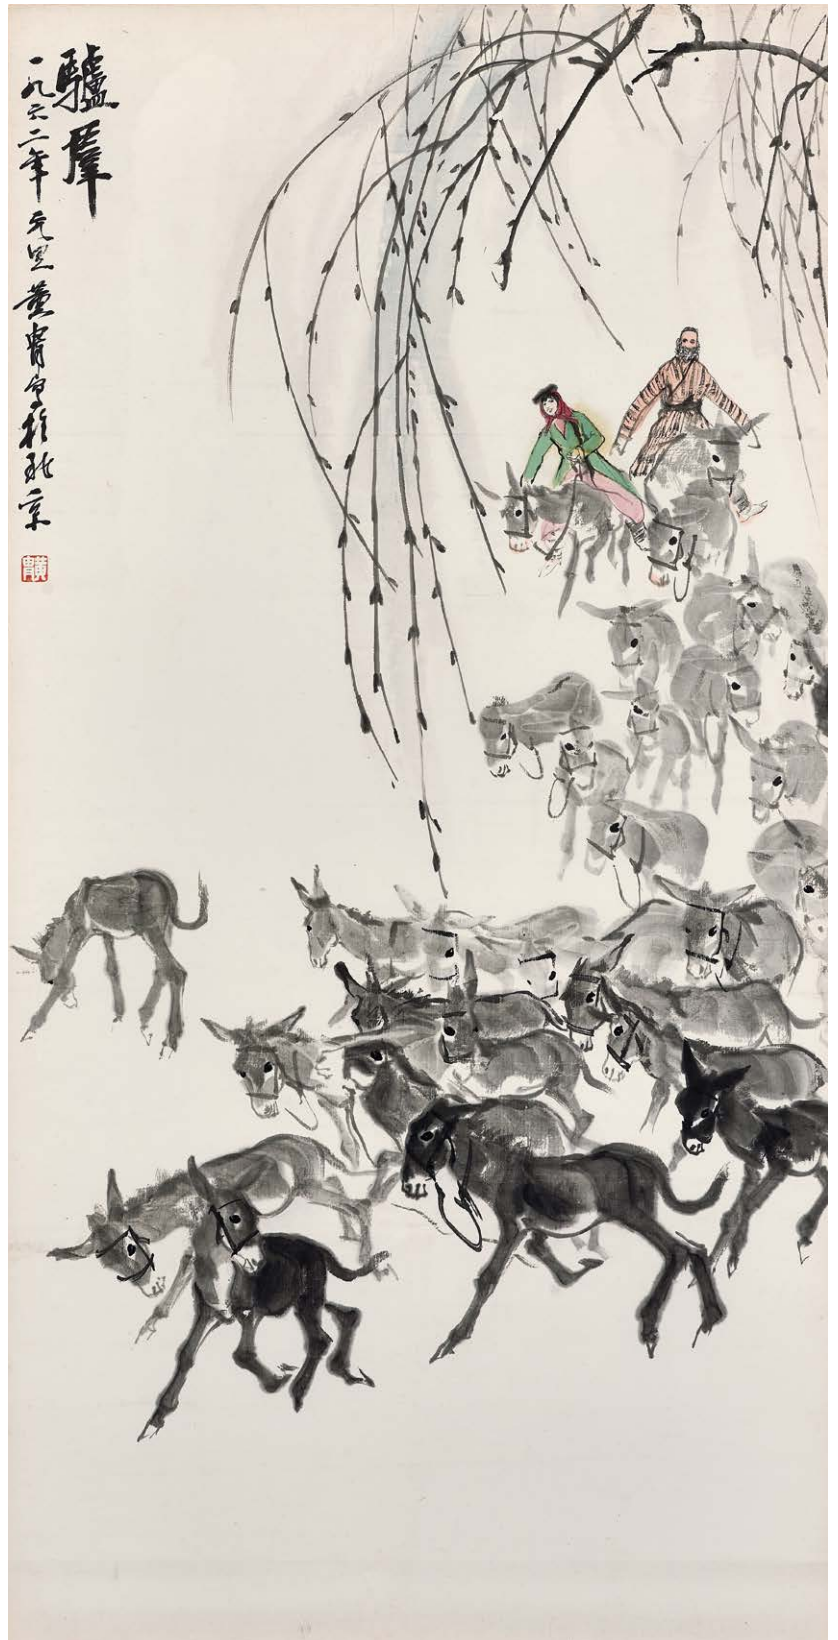 驢羣
一九六二年元旦黄胄写於北京
黄胄